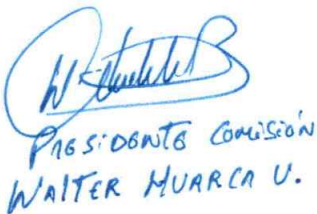 PRESIDENTE COMISIÓN
WALTER HUARCA U.